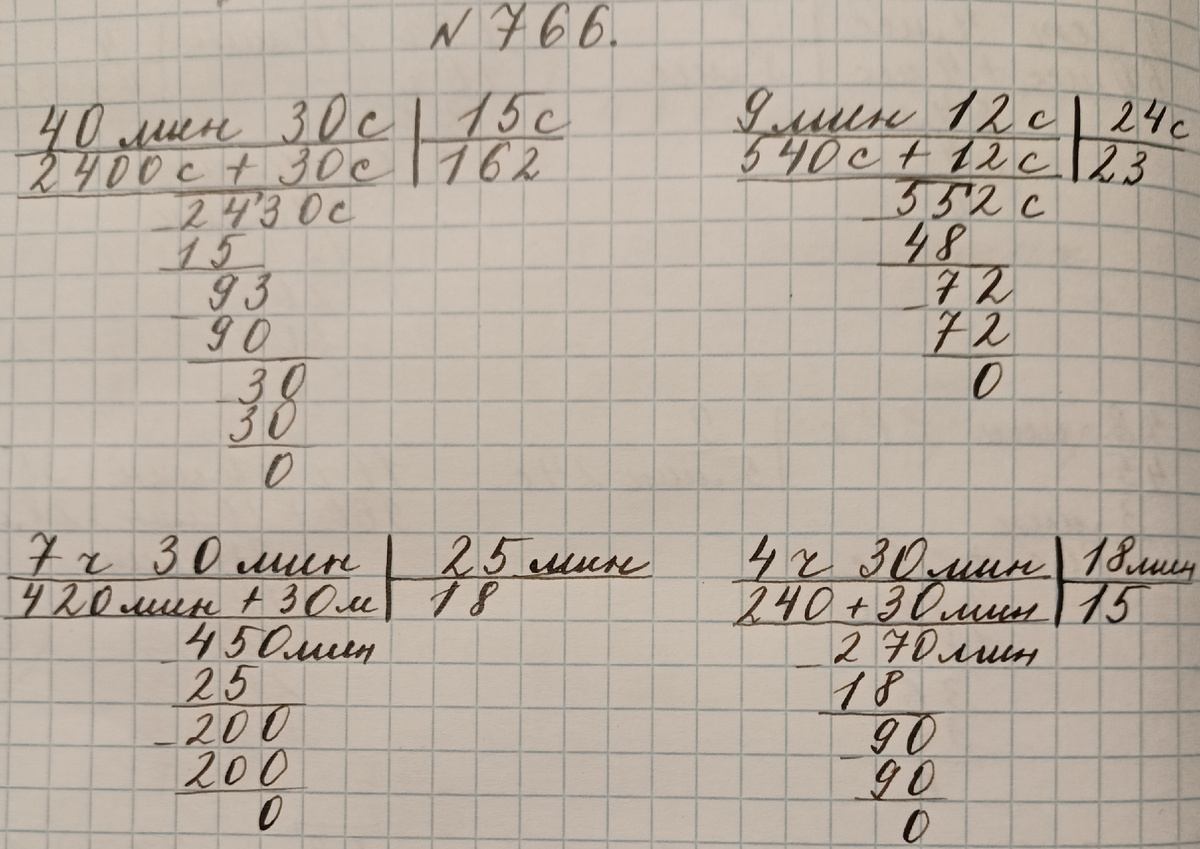 N 766.
40 мин 30с 15с
2400с + 30с 162
2430с
15
93
90
30
30
0
9мин 12с 24с
540с + 12с 23
552с
48
72
72
0
7ч 30мин 25мин
420мин + 30м 18
450мин
25
200
200
0
4ч 30мин 18мин
240 + 30мин 15
270мин
18
90
90
0